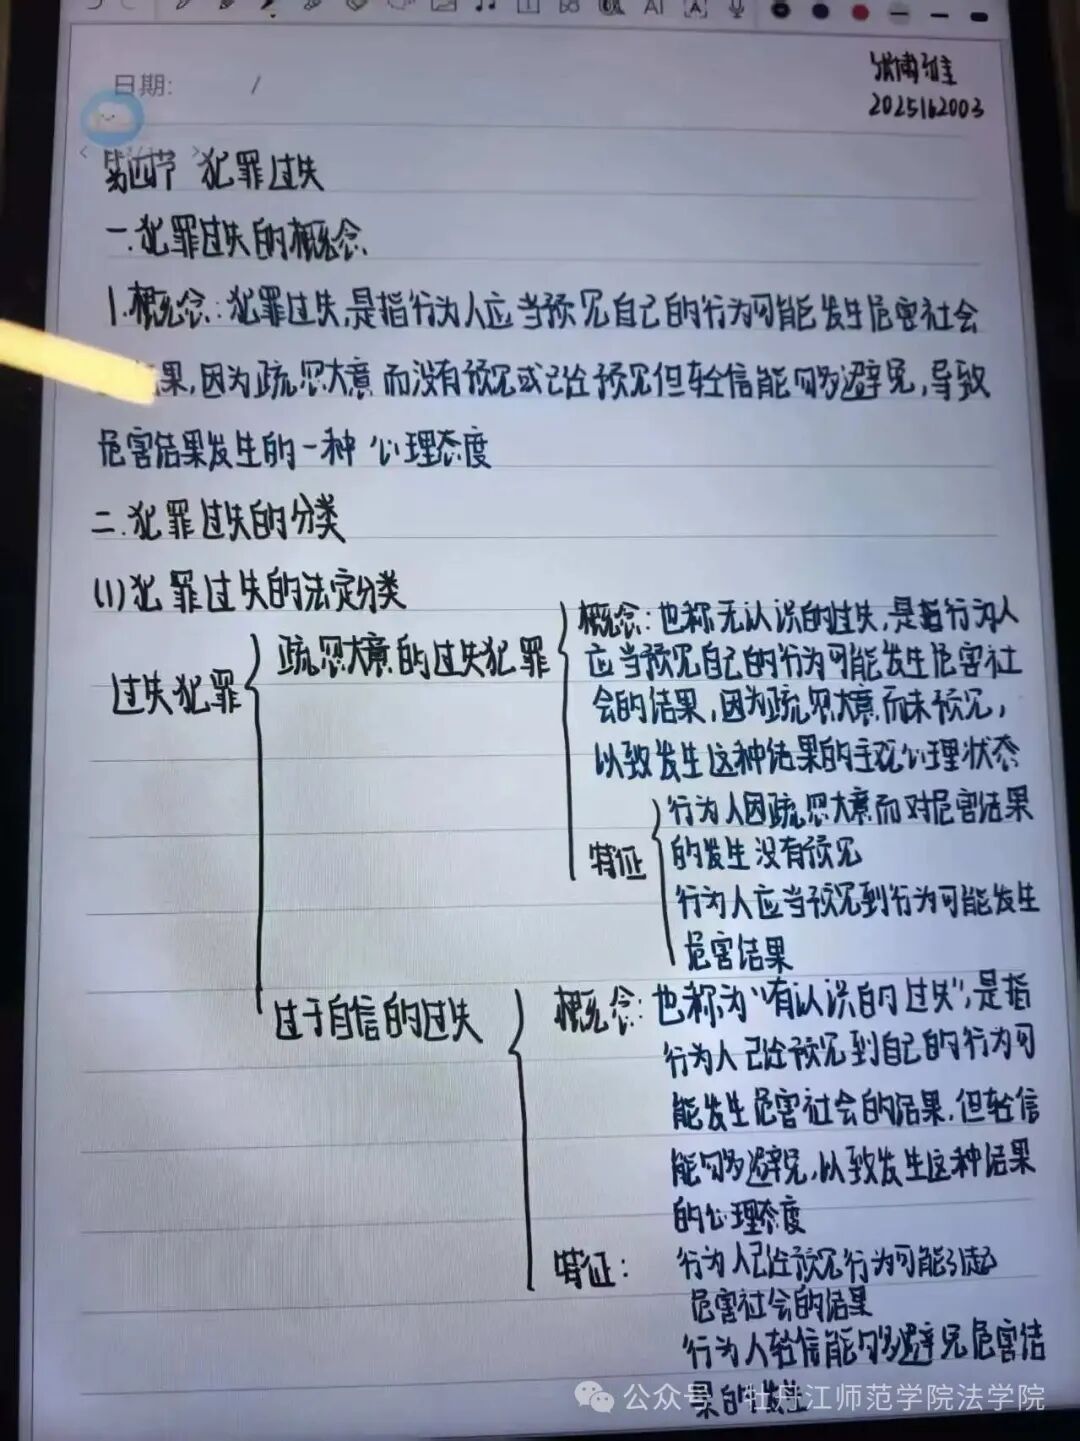 2025162003
日期: /
第四节 犯罪过失
一.犯罪过失的概念
1.概念:犯罪过失,是指行为人应当预见自己的行为可能发生危害社会
果,因为疏忽大意而没有预见或已经预见但轻信能够避免,导致
危害结果发生的一种 心理态度
二.犯罪过失的分类
(1)犯罪过失的法定分类
过失犯罪
疏忽大意的过失犯罪
概念:也称无认识的过失,是指行为人
应当预见自己的行为可能发生危害社
会的结果,因为疏忽大意而未预见,
以致发生这种结果的主观心理状态
特征
行为人因疏忽大意而对危害结果
的发生没有预见
行为人应当预见到行为可能发生
危害结果
过于自信的过失
概念:也称为“有认识的过失”,是指
行为人已经预见到自己的行为可
能发生危害社会的结果,但轻信
能够避免,以致发生这种结果
的心理态度
特征:
行为人已经预见行为可能引起
危害社会的结果
行为人轻信能够避免危害结
果的发生
公众号 牡丹江师范学院法学院